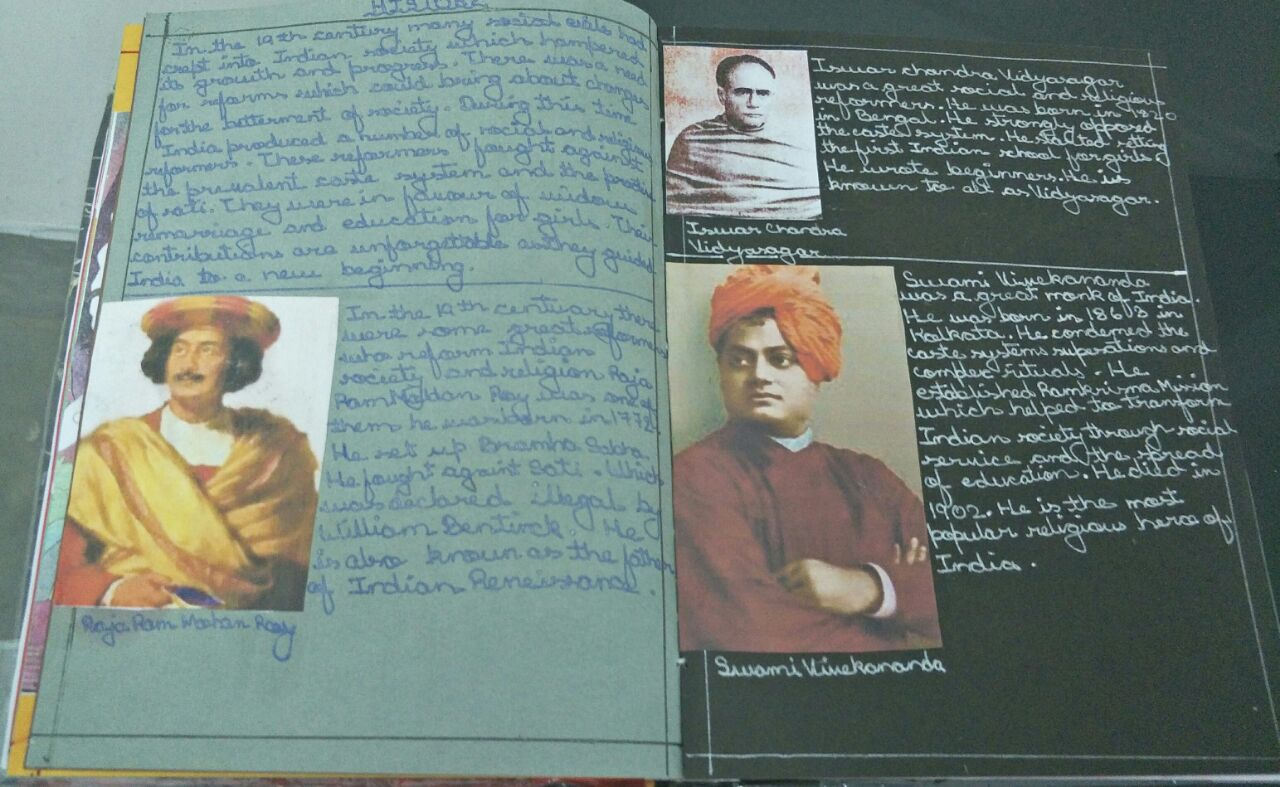 HISTORY
In the 19th century many social evils had
crept into Indian society which hampered
its growth and progress. There was a need
for reforms which could bring about changes
for the betterment of society. During this time
India produced a number of social and religious
reformers. These reformers fought against
the prevalent caste system and the practice
of sati. They were in favour of widow
remarriage and education for girls. Their
contributions are unforgetable as they guided
India to a new beginning.
In the 19th centuary there
were some great reformers
who reform Indian
society and religion Raja
Ram Mohan Roy was one of
them he was born in 1772
He set up Bramho Sabha
He fought against Sati. Which
was declared illegal by
William Bentinck. He
is also known as the father
of Indian Reneissance.
Raja Ram Moohan Roy
Iswar chandra Vidyasagar
was a great social and religious
reformers. He was born in 1820
in Bengal. He strongly opposed
the caste system. He started setting
the first Indian school for girls
He wrote beginners. He is
known to all as Vidyasagar.
Iswar Chandra
Vidyasagar
Swami Vivekananda
was a great monk of India.
He was born in 1863 in
Kolkata. He condemed the
caste systems superations and
complex rituals. He
established Ramkrisna Mission
which helped to transform
Indian society through social
service and the spread
of education. He died in
1902. He is the most
popular religious hero of
India.
Swami Vivekananda